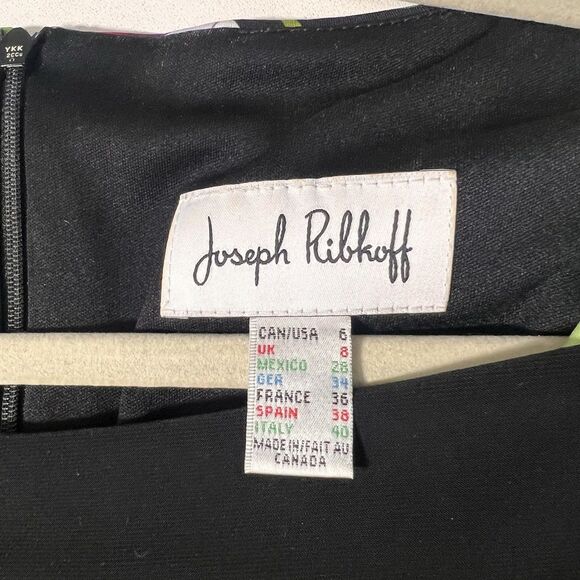 YKK
2CC
Joseph Ribkoff
CAN/USA 6
UK 8
MEXICO 28
GER 34
FRANCE 36
SPAIN 38
ITALY 40
MADE IN/FAIT AU
CANADA